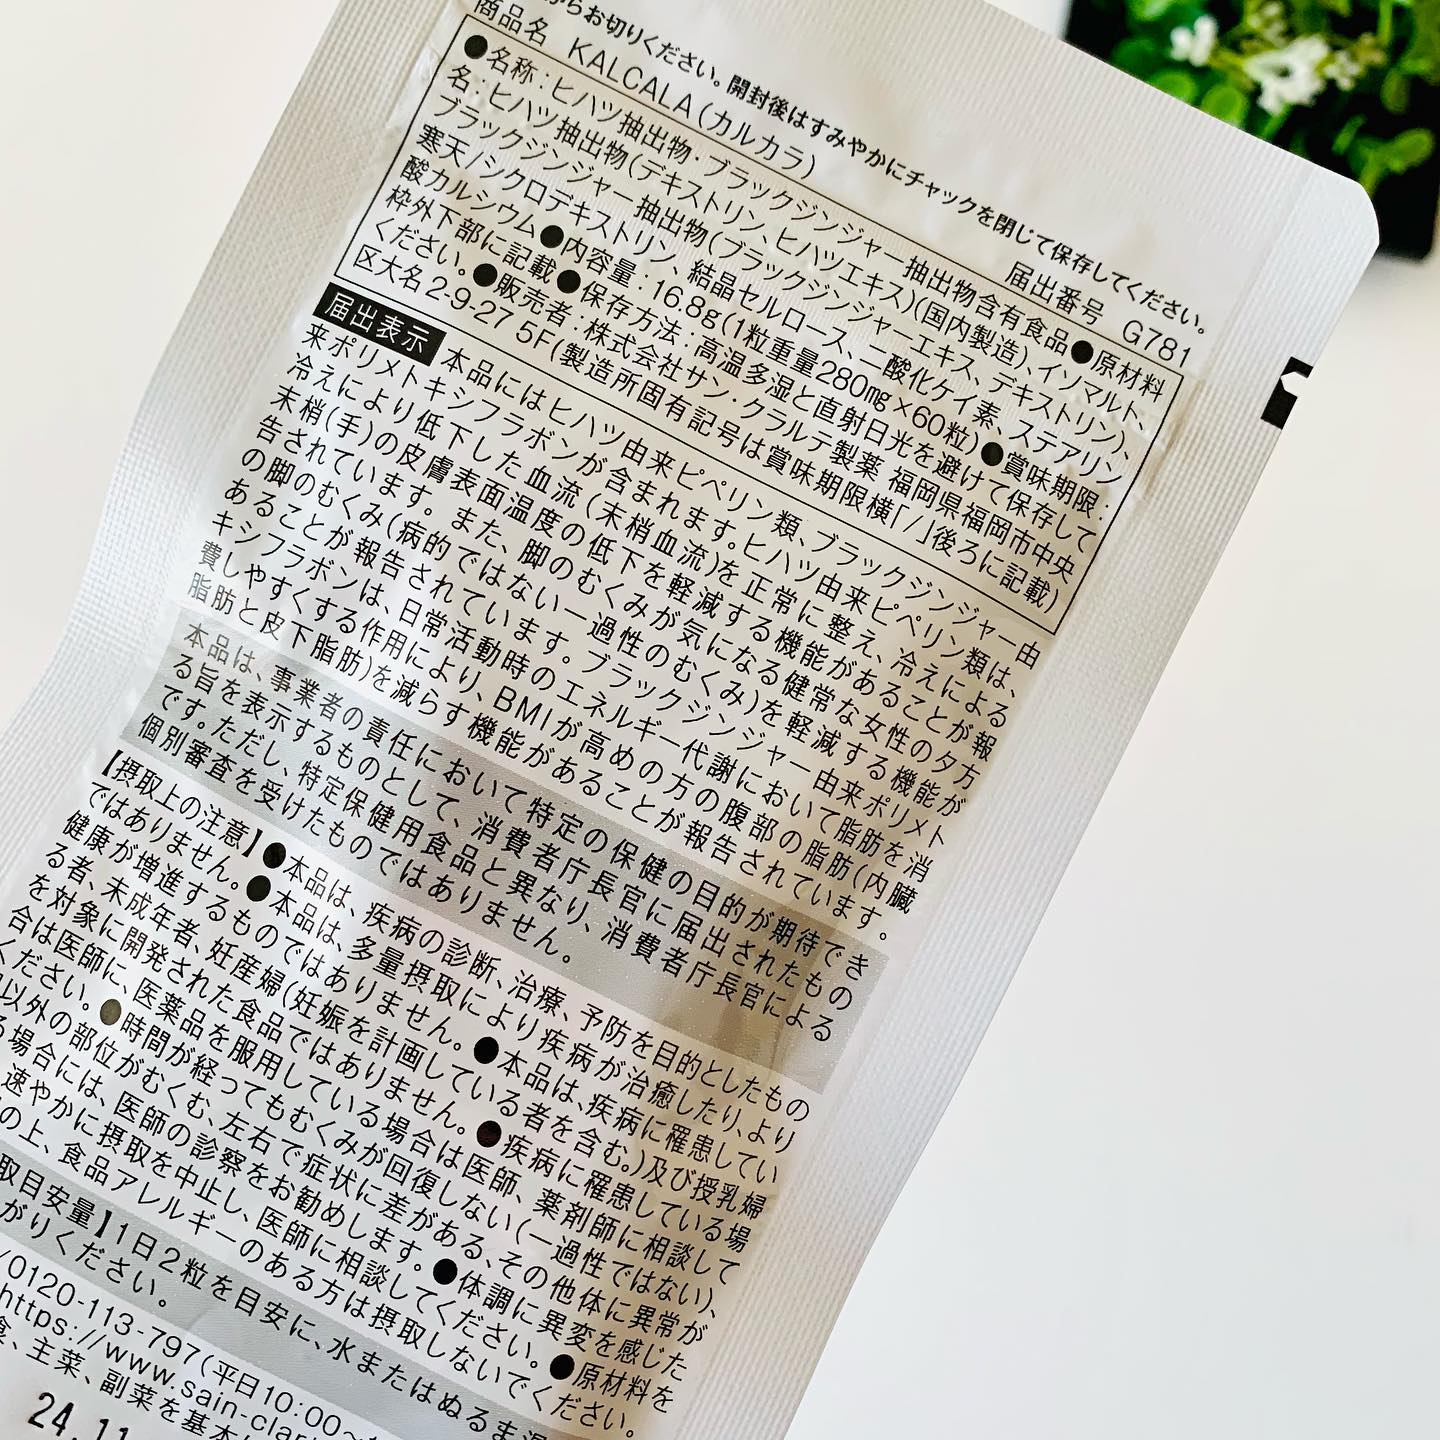 からお切りください。開封後はすみやかにチャックを閉じて保存してください。
商品名 KALCALA(カルカラ) 届出番号 G781
●名称:ヒハツ抽出物・ブラックジンジャー抽出物含有食品●原材料
名:ヒハツ抽出物(デキストリン、ヒハツエキス)(国内製造)、イソマルト、
ブラックジンジャー抽出物(ブラックジンジャーエキス、デキストリン)、
寒天/シクロデキストリン、結晶セルロース、二酸化ケイ素、ステアリン
酸カルシウム●内容量:16.8g(1粒重量280mg×60粒)●賞味期限:
枠外下部に記載●保存方法:高温多湿と直射日光を避けて保存して
ください。●販売者:株式会社サン・クラルテ製薬 福岡県福岡市中央
区大名2-9-27 5F(製造所固有記号は賞味期限横「/」後ろに記載)
届出表示 本品にはヒハツ由来ピペリン類、ブラックジンジャー由
来ポリメトキシフラボンが含まれます。ヒハツ由来ピペリン類は、
冷えにより低下した血流(末梢血流)を正常に整え、冷えによる
末梢(手)の皮膚表面温度の低下を軽減する機能があることが報
告されています。また、脚のむくみが気になる健常な女性の夕方
の脚のむくみ(病的ではない一過性のむくみ)を軽減する機能が
あることが報告されています。ブラックジンジャー由来ポリメト
キシフラボンは、日常活動時のエネルギー代謝において脂肪を消
費しやすくする作用により、BMIが高めの方の腹部の脂肪(内臓
脂肪と皮下脂肪)を減らす機能があることが報告されています。
本品は、事業者の責任において特定の保健の目的が期待でき
る旨を表示するものとして、消費者庁長官に届出されたもの
です。ただし、特定保健用食品と異なり、消費者庁長官による
個別審査を受けたものではありません。
【摂取上の注意】●本品は、疾病の診断、治療、予防を目的としたもの
ではありません。●本品は、多量摂取により疾病が治癒したり、より
健康が増進するものではありません。●本品は、疾病に罹患してい
る者、未成年者、妊産婦(妊娠を計画している者を含む。)及び授乳婦
を対象に開発された食品ではありません。●疾病に罹患している場
合は医師に、医薬品を服用している場合は医師、薬剤師に相談して
ください。●時間が経ってもむくみが回復しない(一過性ではない)、
以外の部位がむくむ、左右で症状に差がある、その他体に異常が
る場合には、医師の診察をお勧めします。●体調に異変を感じた
速やかに摂取を中止し、医師に相談してください。●原材料を
の上、食品アレルギーのある方は摂取しないでください。
取目安量】1日2粒を目安に、水またはぬるま
がりください。
/0120-113-797(平日10:00~
https://www.sain-clar
食、主菜、副菜を基本
24.11